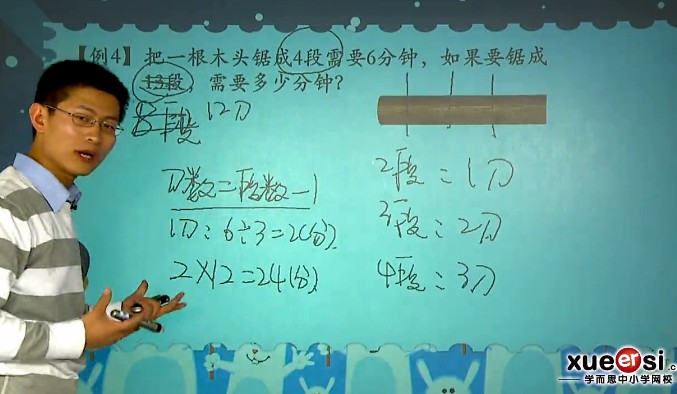 【例4】把一根木头锯成4段需要6分钟，如果要锯成
13段，需要多少分钟？
段 12刀
刀数=段数-1
1刀：6÷3=2(分)
2×12=24(分)
2段：1刀
3段：2刀
4段：3刀
xueersi.c
——学而思中小学网校